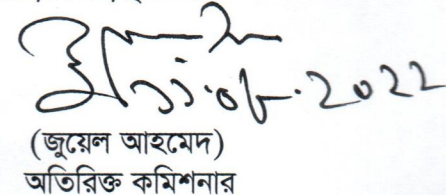 (জুয়েল আহমেদ)
অতিরিক্ত কমিশনার